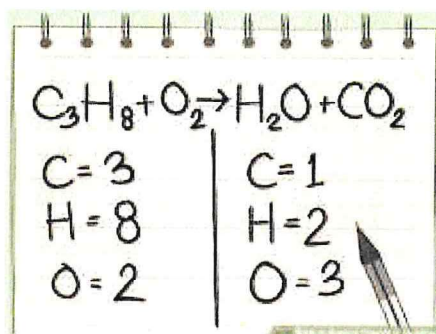 C₃H₈+O₂→H₂O+CO₂
C=3
H=8
O=2
C=1
H=2
O=3